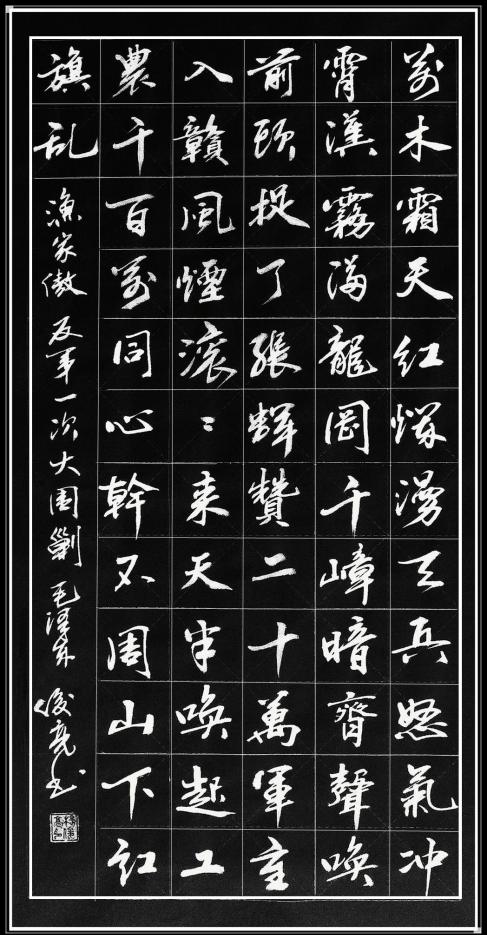 萬木霜天紅爛漫天兵怒氣冲
霄漢霧滿龍岡千嶂暗齊聲喚
前頭捉了張輝贊二十萬軍重
入贛風煙滚〻来天半喚起工
農千百萬同心幹不周山下紅
旗乱
漁家傲 反第一次大圍剿 毛澤东 俊亮书